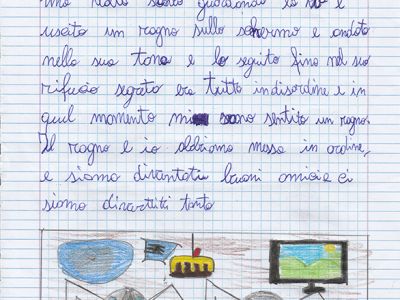 stavo guardando la tv è
uscito un ragno sullo schermo e andato
nella sua tana e lo seguito fino nel suo
rifugio segreto era tutto indisordine e in
quel momento mi sono sentito un ragno.
Il ragno e io abbiamo messo in ordine,
e siamo diventati buoni amici e ci
siamo divertiti tanto